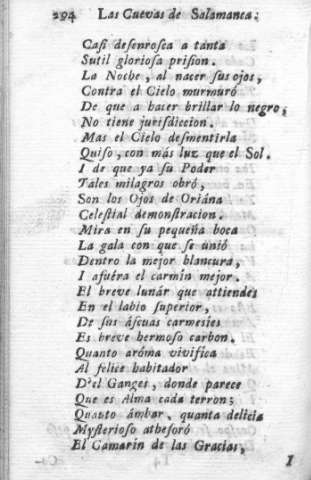 294 Las Cuevas de Salamanca;
Casi desenrosca a tanta
Sutil gloriosa prision.
La Noche, al nacer sus ojos,
Contra el Cielo murmuró
De que a hacer brillar lo negro,
No tiene jurisdiccion.
Mas el Cielo desmentirla
Quiso, con más luz que el Sol.
I de que ya su Poder
Tales milagros obró,
Son los Ojos de Oriána
Celestial demonstracion.
Mira en su pequeña boca
La gala con que se unió
Dentro la mejor blancura,
I afuéra el carmin mejor.
El breve lunár que attiendes
En el labio superior,
De sus áscuas carmesies
Es breve hermoso carbon.
Quanto aróma vivifica
Al felice habitador
D'el Ganges, donde parece
Que es Alma cada terron;
Quanto ámbar, quanta delicia
Mysterioso athesoró
El Camarin de las Gracias,
I